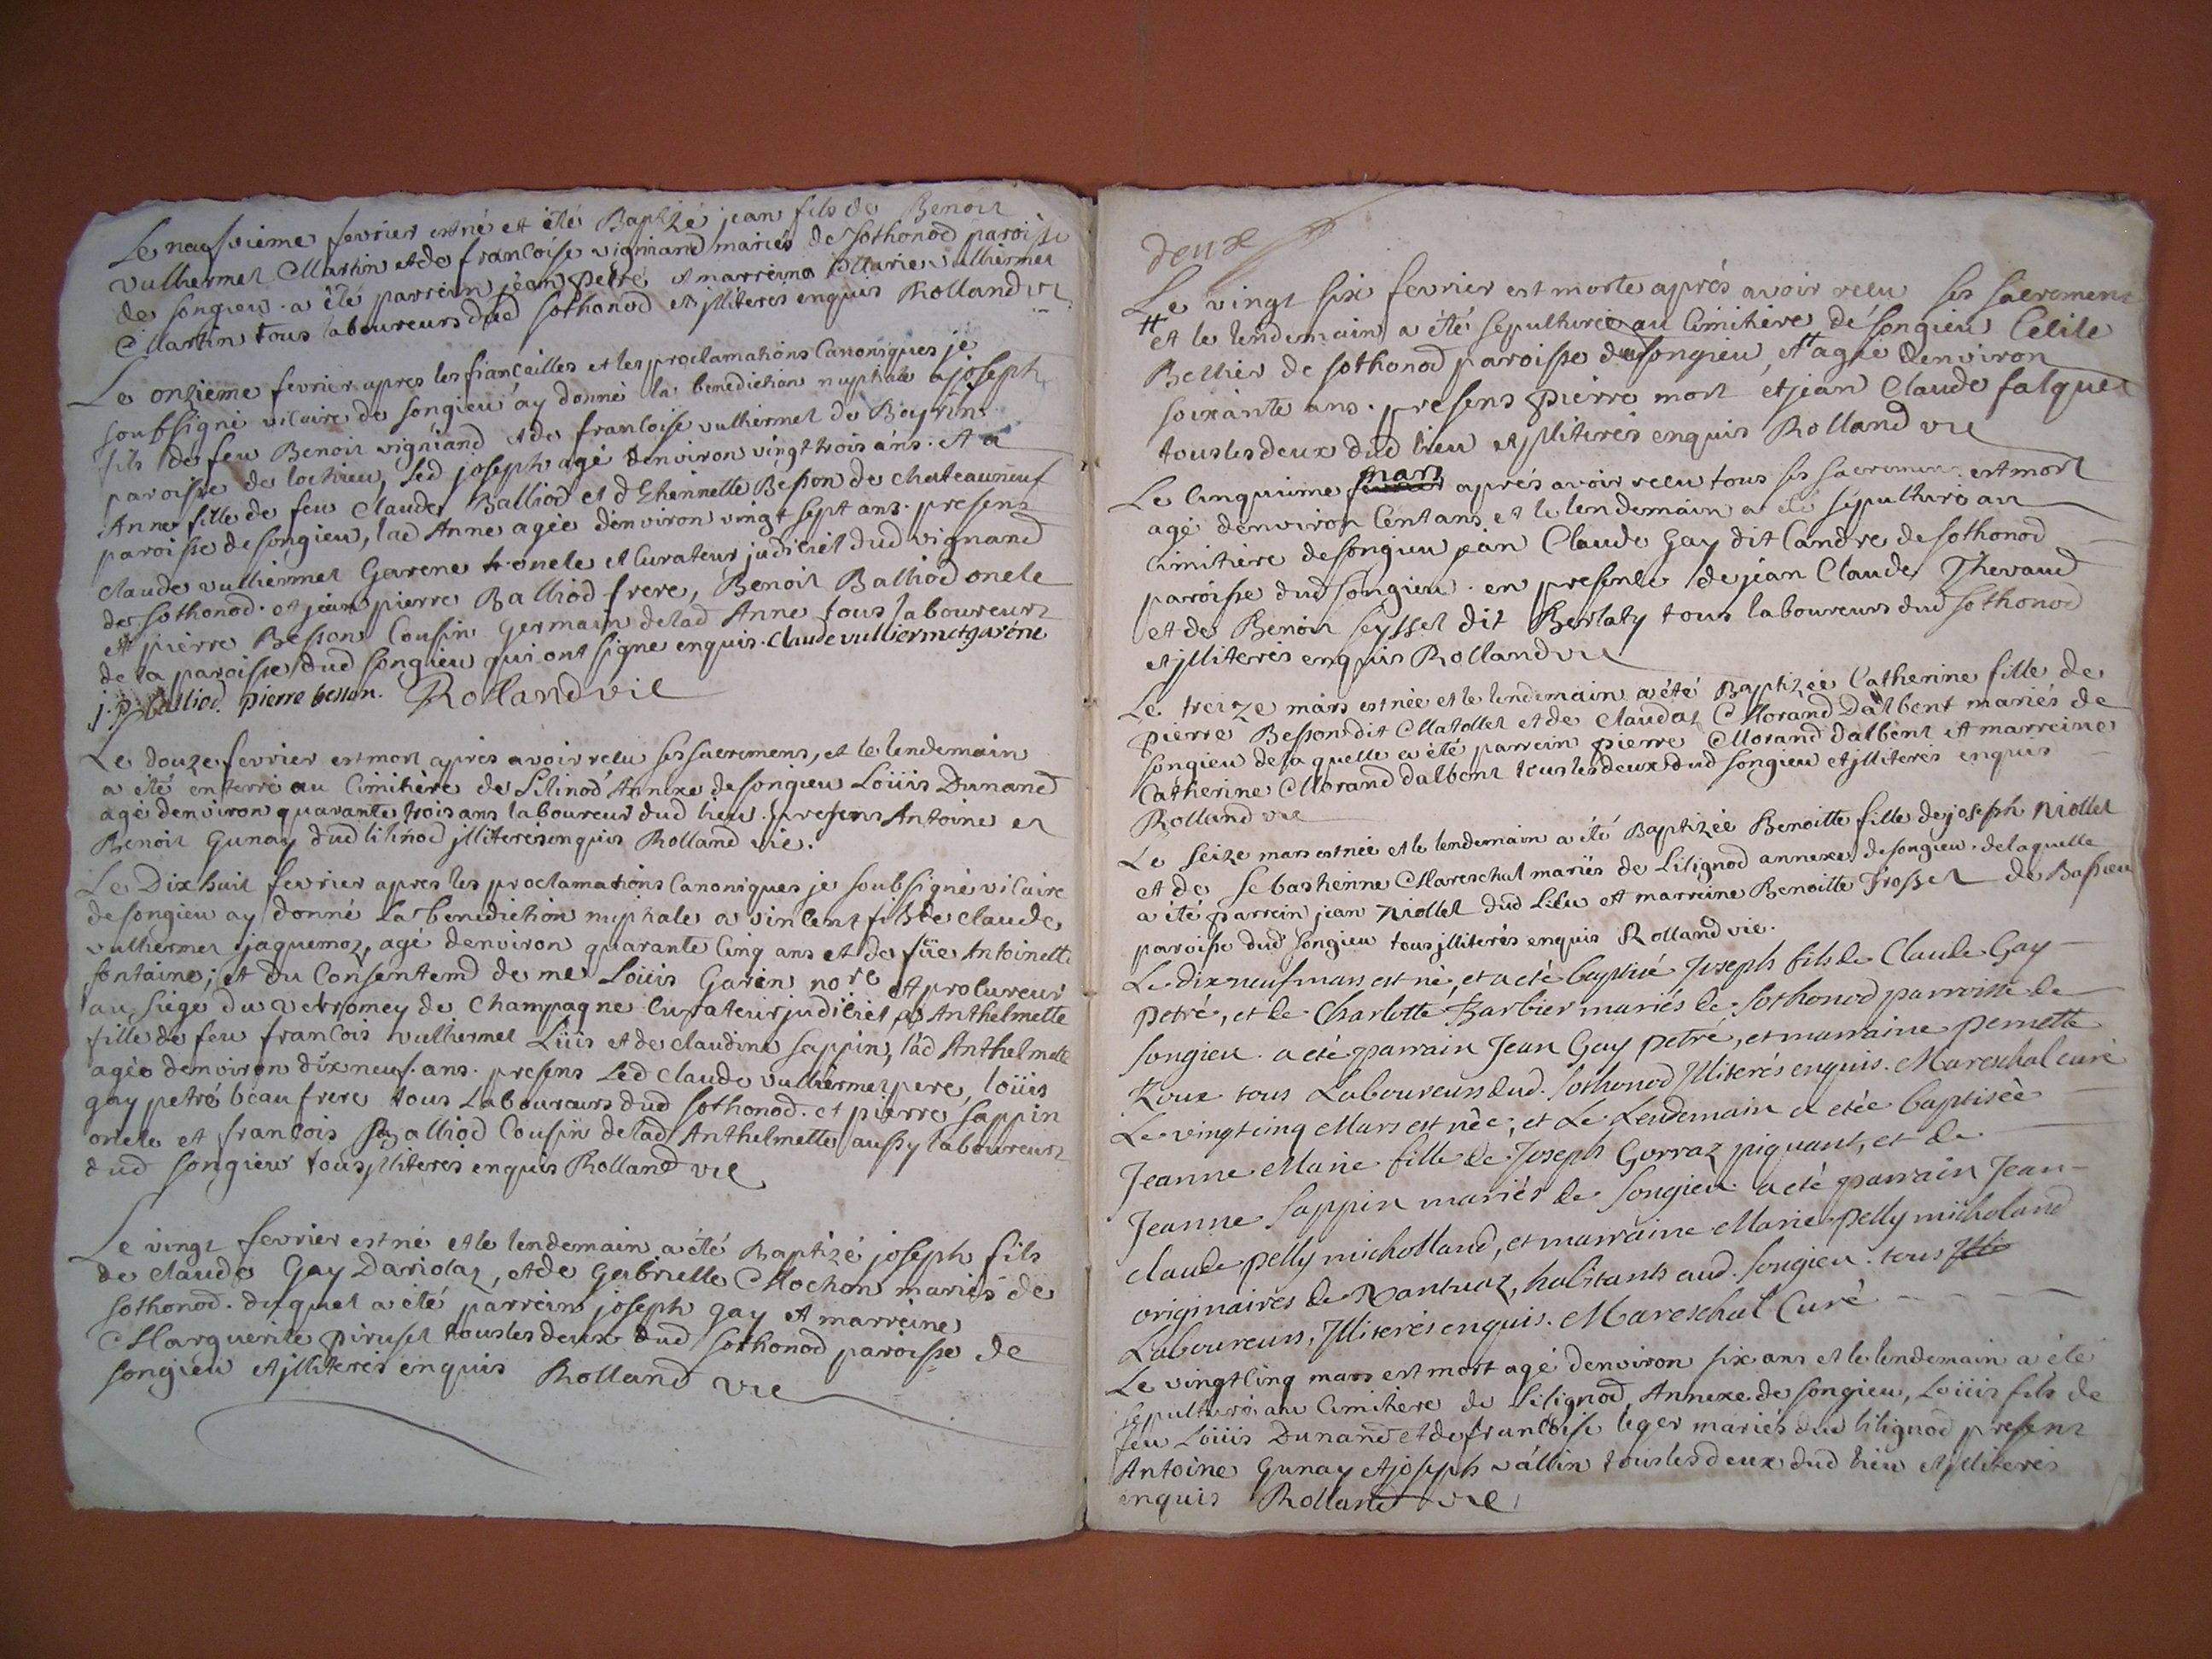 Le neufvieme fevrier est né et été Baptizé jean fils de Benoit
vulliermet Martin et de francoise vigniand mariés de Sothonod paroisse
de songieu. a été parrein jean petré et marreine Marie vulliermet
Martin tous laboureurs dud sothonod et jlliterés enquis Rolland vic
Le onzieme fevrier apres les fiancailles et les proclamations Canoniques je
soubsigné vicaire de songieu ay donné la benediction nuptiale a joseph
fils de feu Benoit vigniand et de francoise vulliermet de
paroisse de lochieu, led joseph agé denviron vingt trois ans. et a
Anne fille de feu Claude Balliod et d'Ethiennette Besson de chateauneuf
paroisse de songieu, lad Anne agée denviron vingt sept ans. presens
claude vulliermet Garene oncle et Curateur judiciel dud vigniand
de sothonod. et jean pierre Balliod frere, Benoit Balliod oncle
et pierre Besson Cousin Germain delad Anne tous laboureurs
de la paroisse dud songieu qui ont signe enquis. claude vulliermet garéne
j. p. balliod. pierre besson. Rolland vic
Le douze fevrier est mort apres avoir recu ses sacremens, et le lendemain
a été enterré au Cimitiére de Lilinod Annexe de songieu Loüis Dunand
agé denviron quarante trois ans laboureur dud lieu. presens Antoine et
Benoit Gunay dud lilinod jlliterés enquis Rolland vic.
Le Dix huit fevrier apres les proclamations Canoniques je soubsigné vicaire
de songieu ay donné La benediction nuptiale a vincent fils de claude
vulliermet jaquemoz, agé denviron quarante Cinq ans et de füe Antoinette
fontaine; et du Consentemd de me Loüis Garin nore et procureur
au siége du verromey de Champagne Curateur judiciel a Anthelmette
fille de feu francois vulliermet Lüis et de claudine sappin, lad Anthelmette
agée denviron dix neuf ans. presens Led claude vulliermet pere, loüis
gay petré beau frere tous Laboureurs dud sothonod. et pierre sappin
oncle et francois Balliod Cousin delad Anthelmette aussy laboureurs
dud songieu tous jlliterés enquis Rolland vic
Le vingt fevrier est né et le lendemain a été Baptizé joseph fils
de claude Gay Dariolaz, et de Gabrielle Mochon mariés de
sothonod. duquel a été parrein joseph gay et marreine
Marguerite tous les deux dud sothonod paroisse de
songieu et jlliterés enquis Rolland vic
deux
Le vingt six fevrier est morte aprés avoir recu ses sacremens
et le lendemain a été sepulturée au Cimitiére de songieu Cecile
Bellier de sothonod paroisse dud songieu, # agée denviron
soixante ans. presens pierre mort et jean Claude falquet
tous les deux dud lieu et jlliterés enquis Rolland vic
Le Cinquieme mars aprés avoir recu tous ses sacremens est mort
agé denviron Cent ans et le lendemain a été sépulturé au
Cimitiére de songieu jean Claude Gay dit Candre de sothonod
paroisse dud songieu. en presence de jean Claude Thevand
et de Benoit seyssel dit Berlaty tous laboureurs dud sothonod
et jlliterés enquis Rolland vic
Le treize mars est née et le lendemain a été Baptizée Catherine fille de
pierre Besson dit Matollet et de claudaz Morand Dalbent mariés de
songieu de laquelle a été parrein pierre Morand dalbent et marreine
Catherine Morand dalbent tous les deux dud songieu et jlliterés enquis
Rolland vic
Le seize mars est née et le lendemain a été Baptizée Benoitte fille de joseph Niollet
et de sebastienne Mareschal mariés de Lilignod annexe de songieu. de laquelle
a été parrein jean Niollet dud Lieu et marreine Benoitte Trosset de Bassieu
paroisse dud songieu tous jlliterés enquis Rolland vic.
Le dix neuf mars est né et a eté baptisé Joseph fils de Claude Gay
petré, et de Charlotte Barbier mariés de Sothonod parroisse de
songieu. a eté parrain Jean Gay petré, et marraine pernette
Roux tous Laboureurs dud. sothonod Jlliterés enquis. Mareschal curé
Le vingt cinq Mars est née, et Le Lendemain a etée baptisée
Jeanne Marie fille de Joseph Gorraz piquant, et de
Jeanne Sappin mariés de songieu. a eté parrain Jean
claude pelly micholland, et marraine Marie pelly micholand
originaires de Nantuaz, habitants aud. songieu. tous Jlli
Laboureurs, Jlliterés enquis. Mareschal Curé
Le vingt cinq mars est mort agé denviron six ans et le lendemain a été
sepulturé au Cimitiere de Lilignod, Annexe de songieu, Loüis fils de
feu Loüis Dunand et de francoise leger mariés dud lilignod presens
Antoine Gunay et joseph vallin tous les deux dud lieu et jlliterés
enquis Rolland vic